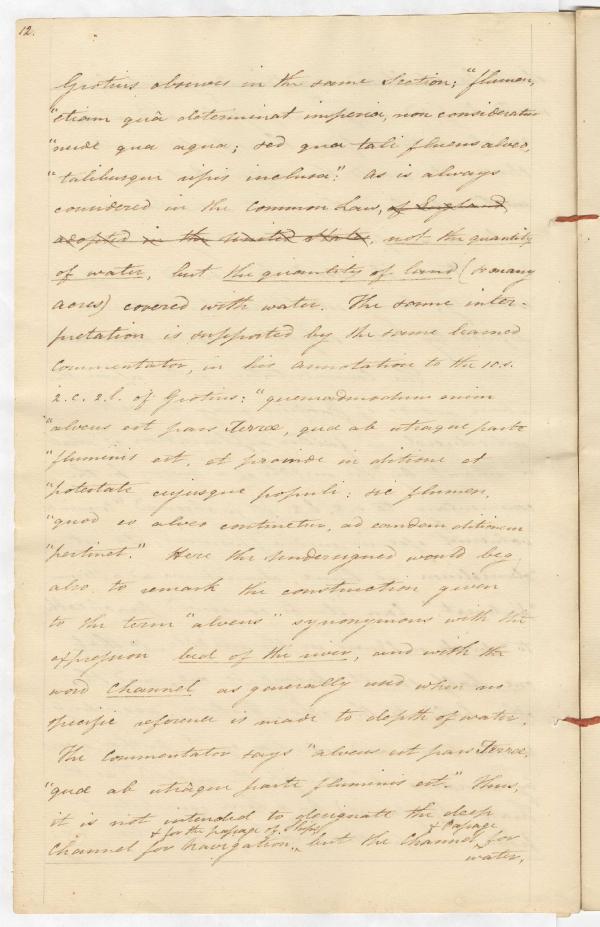 12.
Grotius observes in the same Section; "flumen,
"etiam quâ determinat imperia, non consideratur
"nude qua aqua; sed qua tali fluens alveo,
"talibusque ripis inclusa." As is always
considered in the Common Law, of England
adopted in the United States, not the quantity
of water, but the quantity of land (so many
acres) covered with water. The same inter-
pretation is supported by the same learned
Commentator, in his annotation to the 10.s.
2.c. 2.l. of Grotius: "quemadmodum enim
"alveus est pars Terræ, quæ ab utraque parte
"fluminis est, et proinde in ditione et
"potestate cujusque populi: sic flumen,
"quod eo alveo continetur, ad eandem ditionem
"pertinet." Here the undersigned would beg
also to remark the construction given
to the term "alveus" synonymous with the
expression bed of the river, and with the
word Channel as generally used when no
specific reference is made to depth of water.
The Commentator says "alveus est pars Terræ,
"quæ ab utrâque parte fluminis est." Thus,
it is not intended to designate the deep
& for the passage of Ships & Passage
Channel for navigation, but the Channel for
water,